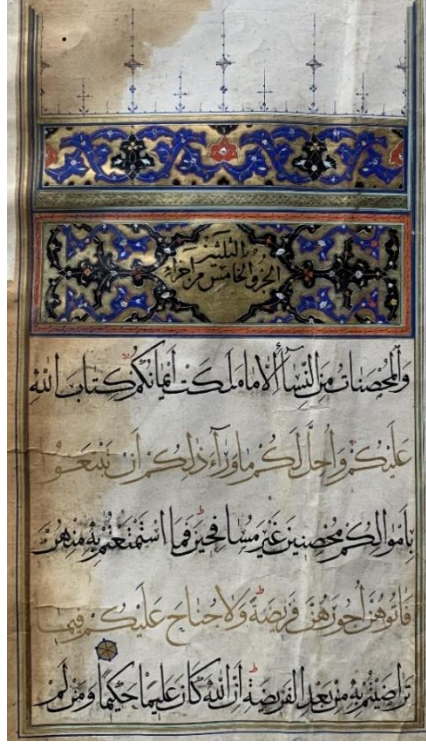 الجزو الخامس من اجزاء
الثلثين
وَالْمُحْصَنَاتُ مِنَ النِّسَاءِ إِلَّا مَا مَلَكَتْ أَيْمَانُكُمْ كِتَابَ اللهِ
عَلَيْكُمْ وَأُحِلَّ لَكُمْ مَا وَرَآءَ ذٰلِكُمْ أَنْ تَبْتَغُوا
بِأَمْوَالِكُمْ مُحْصِنِينَ غَيْرَ مُسَافِحِينَ فَمَا اسْتَمْتَعْتُمْ بِهِ مِنْهُنَّ
فَآتُوهُنَّ أُجُورَهُنَّ فَرِيضَةً وَلَا جُنَاحَ عَلَيْكُمْ فِيمَا
تَرَاضَيْتُمْ بِهِ مِنْ بَعْدِ الْفَرِيضَةِ إِنَّ اللهَ كَانَ عَلِيمًا حَكِيمًا وَمَنْ لَمْ